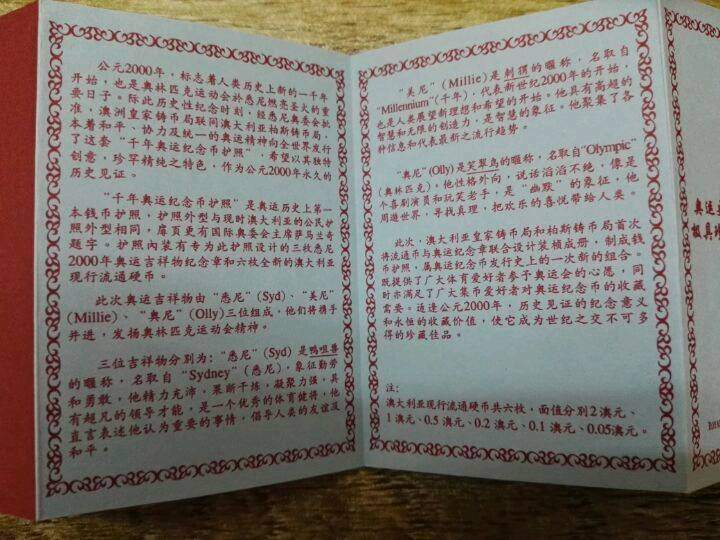 公元2000年，标志着人类历史上新的一千年
开始，也是奥林匹克运动会於悉尼燃亮圣火的重
要日子。际此历史性纪念时刻，经悉尼奥委会批
准，澳洲皇家铸币局联同澳大利亚柏斯铸币局，
本着和平、协力及统一的奥运精神向全世界发行
了这套“千年奥运纪念币护照”，希望以其独特
创意，珍罕精纯之特色，作为公元2000年永久的
历史见证。
“千年奥运纪念币护照”是奥运历史上第一
本钱币护照，护照外型与现时澳大利亚的公民护
照外型相同，扉页更有国际奥委会主席萨马兰奇
题字。护照内装有专为此护照设计的三枚悉尼
2000年奥运吉祥物纪念章和六枚全新的澳大利亚
现行流通硬币。
此次奥运吉祥物由“悉尼”(Syd)、“美尼”
(Millie)、“奥尼”(Olly)三位组成，他们将携手
并进，发扬奥林匹克运动会精神。
三位吉祥物分别为：“悉尼”(Syd) 是鸭咀兽
的暱称，名取自“Sydney”(悉尼)，象征勤劳
和勇敢，他精力充沛，果断干练，凝聚力强，具
有超凡的领导才能，是一个优秀的体育健将，他
直言表述他认为重要的事情，倡导人类的友谊及
和平。
“美尼”(Millie)是刺猬的暱称，名取自
“Millennium”(千年)，代表新世纪2000年的开始，
也是人类展望新理想和希望的开始。他具有高超的
智慧和无限的创造力，是智慧的象征。他聚集了各
种信息和代表最新之流行趋势。
“奥尼”(Olly)是笑翠鸟的暱称，名取自“Olympic”
(奥林匹克)，他性格外向，说话滔滔不绝，像是
个喜剧演员和玩笑老手，是“幽默”的象征，他
周遊世界，寻找真理，把欢乐的喜悦带给人类。
此次，澳大利亚皇家铸币局和柏斯铸币局首次
将流通币与奥运纪念章联合设计装植成册，制成钱
币护照，属奥运纪念币发行史上的一次新的组合。
既提供了广大体育爱好者参予奥运会的心愿，同
时亦满足了广大集币爱好者对奥运纪念币的收藏
需要。适逢公元2000年，历史见证的纪念意义
和永恒的收藏价值，使它成为世纪之交不可多
得的珍藏佳品。
注：
澳大利亚现行流通硬币共六枚，面值分别2澳元、
1 澳元、0.5 澳元、0.2 澳元、0.1 澳元、0.05澳元。
奥运
极具